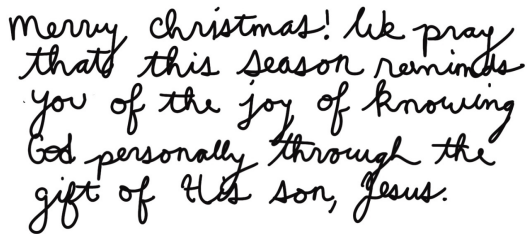 Merry christmas! We pray
thats this season reminds
you of the joy of knowing
God personally through the
gift of His son, Jesus.